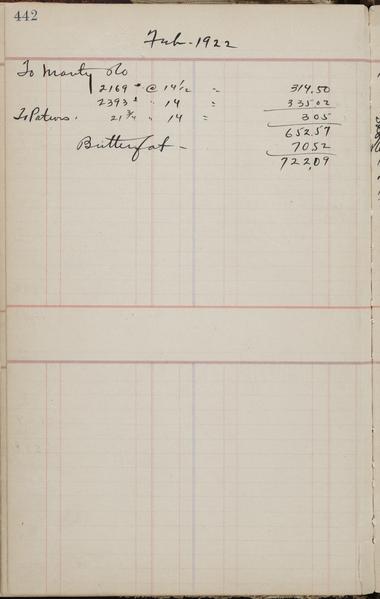 442
Feb - 1922
To Marty & Co
2169 # @ 14 1/2 = 314.50
2393 # " 14 = 33502
To Patrons. 21 3/4 " 14 = 305
65257
Butterfat - 7052
722.09